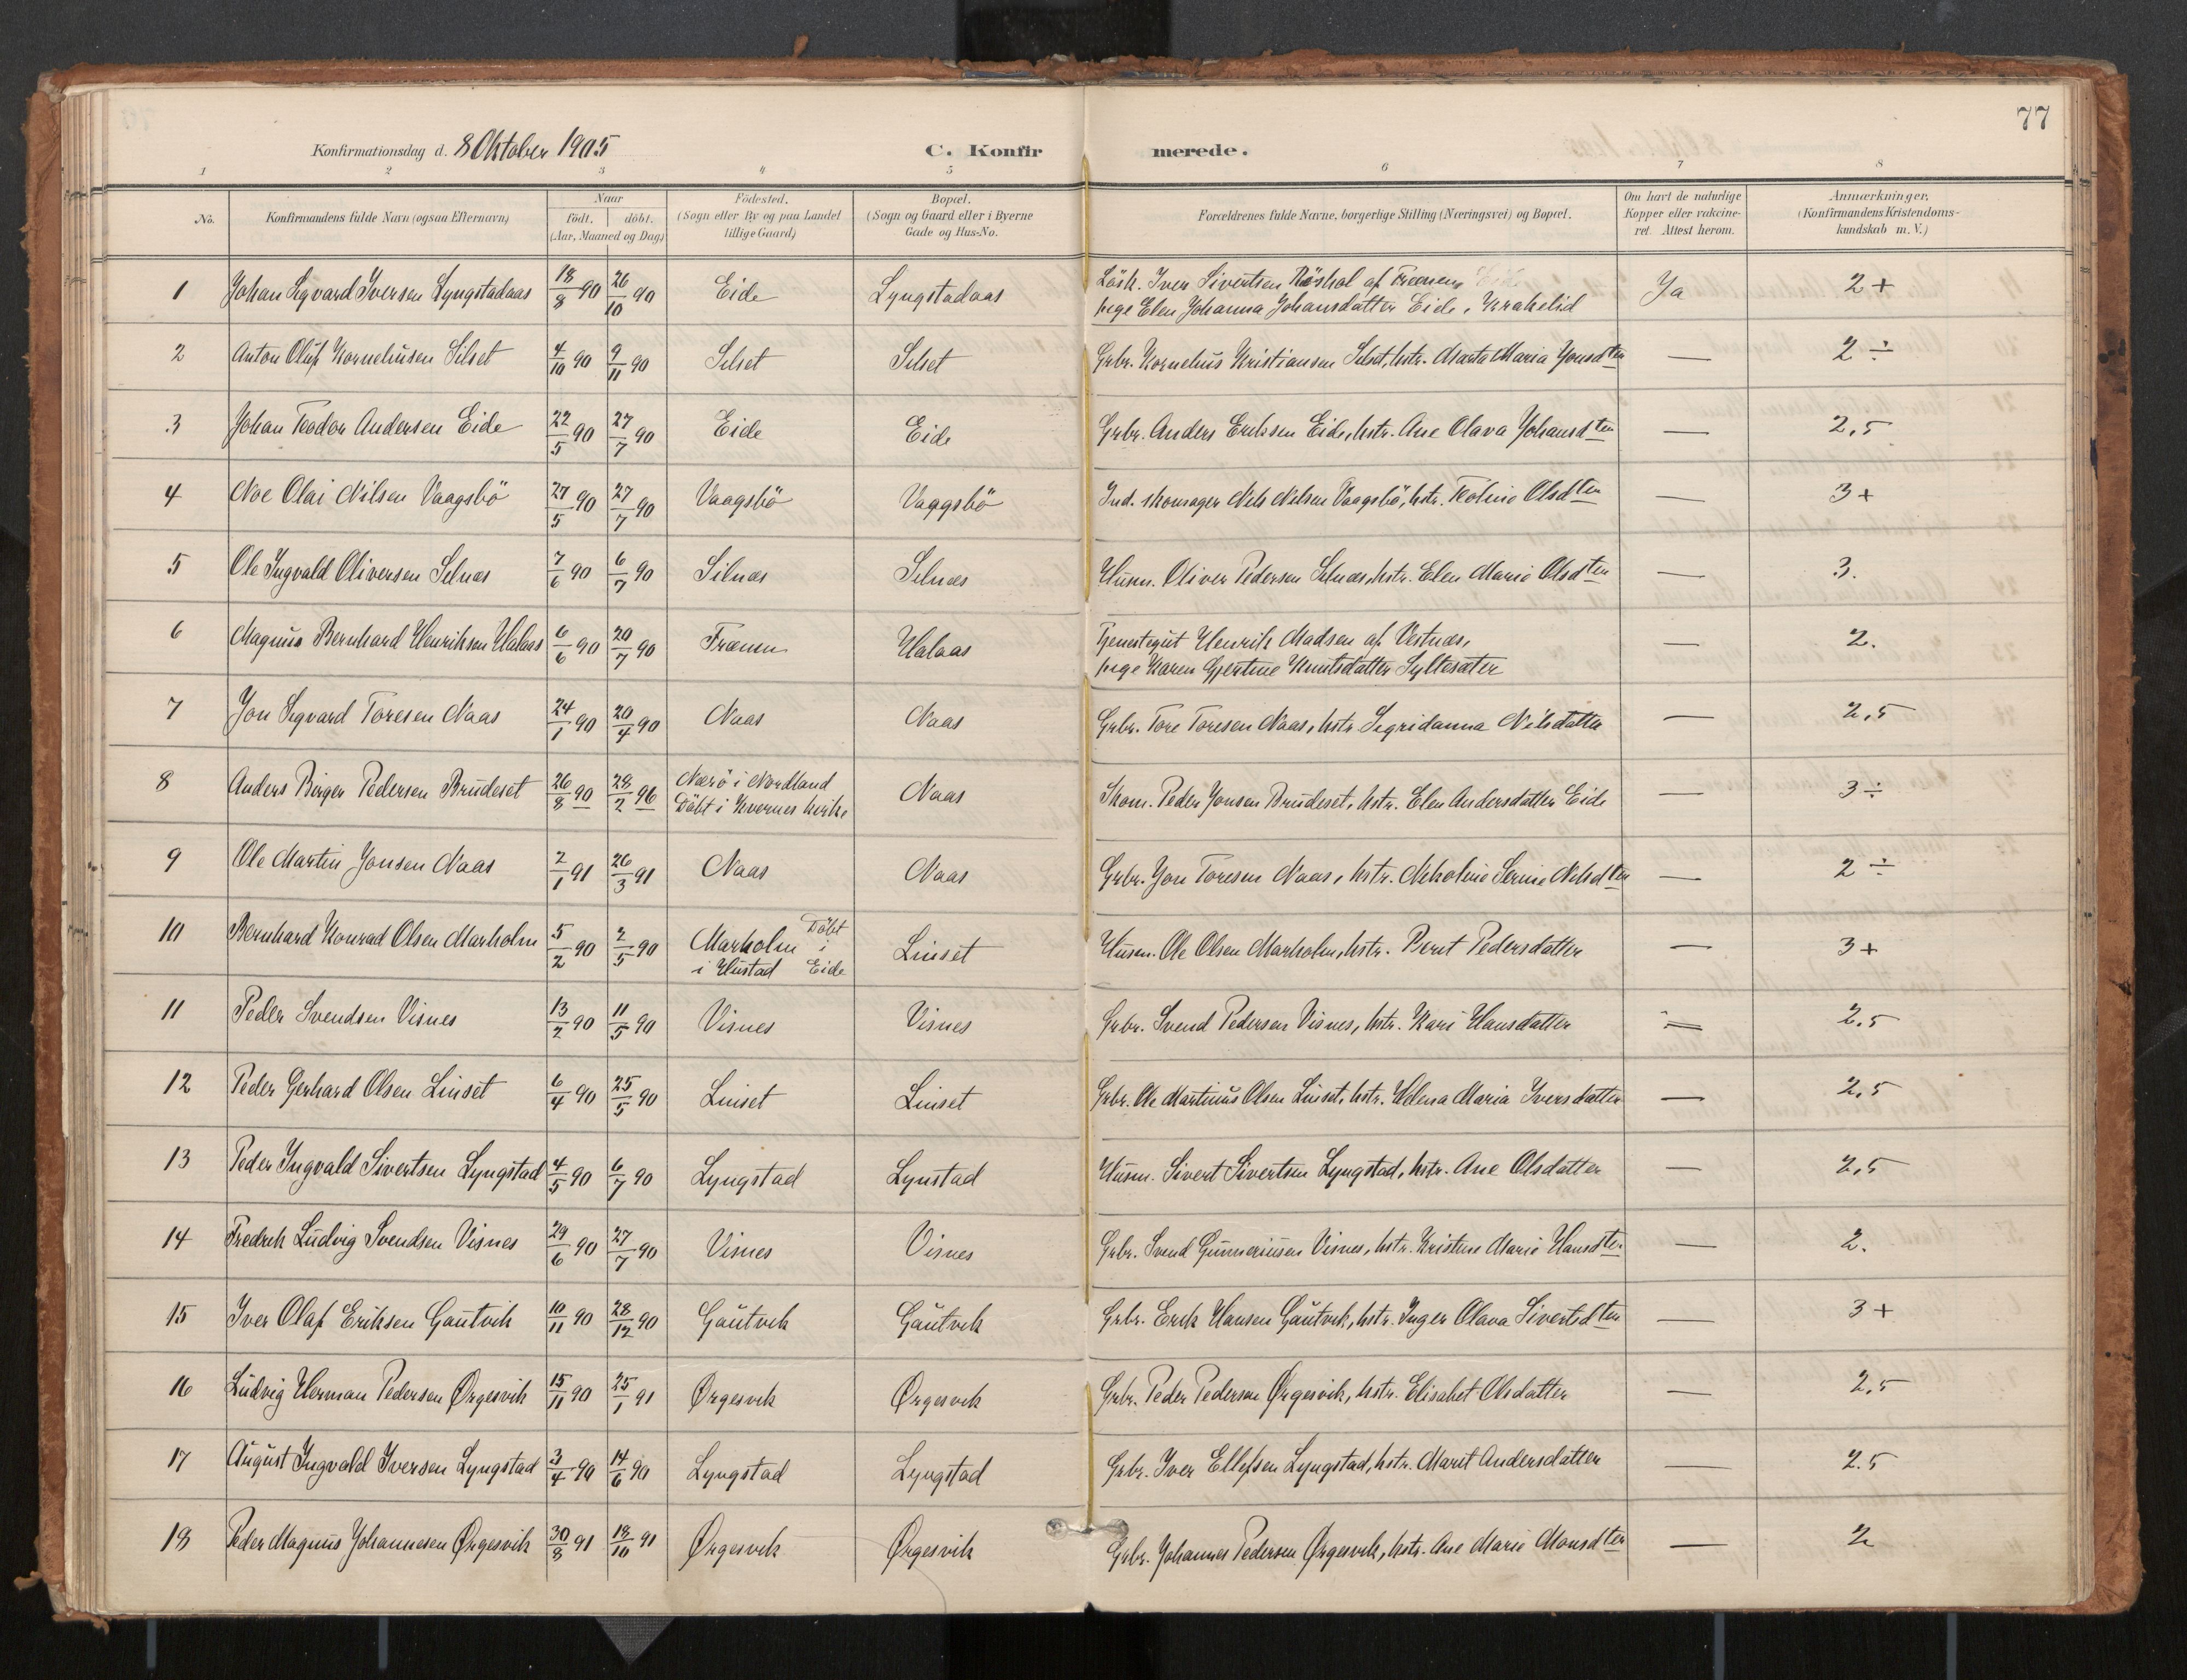 77
Konfirmationsdag d. 8 Oktober 1905
C. Konfirmerede.
1 2 3 4 5 6 7 8
No. Konfirmandens fulde Navn (ogsaa Efternavn) Naar födt. döbt. (Aar, Maaned og Dag) Födested. (Sogn eller By og paa Landet tillige Gaard) Bopæl. (Sogn og Gaard eller i Byerne Gade og Hus-No. Forældrenes fulde Navne, borgerlige Stilling (Næringsvei) og Bopæl. Om havt de naturlige Kopper eller vakcineret. Attest herom. Anmærkninger. (Konfirmandens Kristendomskundskab m. V.)
1 Johan Sigvard Iversen Lyngstadaas 18/8 90 26/10 90 Eide Lyngstadaas Lösk. Iver Sivertsen Röshol af Frænen, Ya 2+
pige Elen Johanna Johansdatter Eide, Krakelid
2 Anton Oluf Korneliusen Silset 4/10 90 9/11 90 Silset Silset Grbr. Kornelius Kristiansen Silset, hstr. Marta Maria Jonsdter — 2÷
3 Johan Teodor Andersen Eide 22/5 90 27/7 90 Eide Eide Grbr. Anders Eriksen Eide, hstr. Ane Olava Johansdter — 2,5
4 Noe Olai Nilsen Vaagsbö 27/5 90 27/7 90 Vaagsbö Vaagsbö Ind. skomager Nils Nilsen Vaagsbö, hstr. Teoline Olsdter — 3+
5 Ole Ingvald Oliversen Silnæs 7/6 90 6/7 90 Silnæs Silnæs Husm. Oliver Pedersen Silnæs, hstr. Elen Marie Olsdter — 3.
6 Magnus Bernhard Henriksen Halaas 6/6 90 20/7 90 Frænen Halaas Tjenestegut Henrik Madsen af Vestnæs, — 2.
pige Karen Gjertine Knutsdatter Syltesæter
7 Jon Sigvard Toresen Naas 24/1 90 20/4 90 Naas Naas Grbr. Tore Toresen Naas, hstr. Sigridanna Nilsdatter — 2,5
8 Anders Birger Pedersen Brudeset 26/8 90 28/2 96 Nærö i Nordland Döbt i Kvernes kirke Naas Skom. Peder Jonsen Brudeset, hstr. Elen Andersdatter Eide — 3÷
9 Ole Martin Jonsen Naas 2/1 91 26/3 91 Naas Naas Grbr. Jon Toresen Naas, hstr. Nikoline Serine Nilsdter — 2÷
10 Bernhard Konrad Olsen Marholm 5/2 90 2/5 90 Marholm i Hustad Döbt i Eide Linset Husm. Ole Olsen Marholm, hstr. Berit Pedersdatter — 3+
11 Peder Svendsen Visnes 13/2 90 11/5 90 Visnes Visnes Grbr. Svend Pedersen Visnes, hstr. Kari Hansdatter — 2,5
12 Peder Gerhard Olsen Linset 6/4 90 25/5 90 Linset Linset Grbr. Ole Martinus Olsen Linset, hstr. Helena Maria Iversdatter — 2,5
13 Peder Ingvald Sivertsen Lyngstad 4/5 90 6/7 90 Lyngstad Lynstad Husm. Sivert Sivertsen Lyngstad, hstr. Ane Olsdatter — 2,5
14 Fredrik Ludvig Svendsen Visnes 29/6 90 27/7 90 Visnes Visnes Grbr. Svend Gunneriusen Visnes, hstr. Kristine Marie Hansdter — 2.
15 Iver Olaf Eriksen Gautvik 10/11 90 28/12 90 Gautvik Gautvik Grbr. Erik Hansen Gautvik, hstr. Inger Olava Sivertsdter — 3+
16 Ludvig Herman Pedersen Ørgesvik 15/11 90 25/1 91 Ørgesvik Ørgesvik Grbr. Peder Pedersen Ørgesvik, hstr. Elisabet Olsdatter — 2,5
17 August Ingvald Iversen Lyngstad 3/4 90 14/6 90 Lyngstad Lyngstad Grbr. Iver Ellefsen Lyngstad, hstr. Marit Andersdatter — 2.5
18 Peder Magnus Johannesen Ørgesvik 30/8 91 18/10 91 Ørgesvik Ørgesvik Grbr. Johannes Pedersen Ørgesvik, hstr. Ane Marie Monsdter — 2